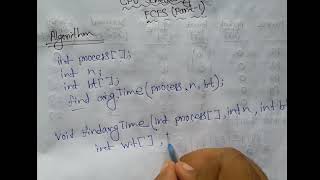 CPU Scheduling
FCFS (Part-1)
Algorithm
int process[];
int n;
int bt[];
find avgTime (process, n, bt);
void findavgTime (int process[], int n, int b
int wt[] ,